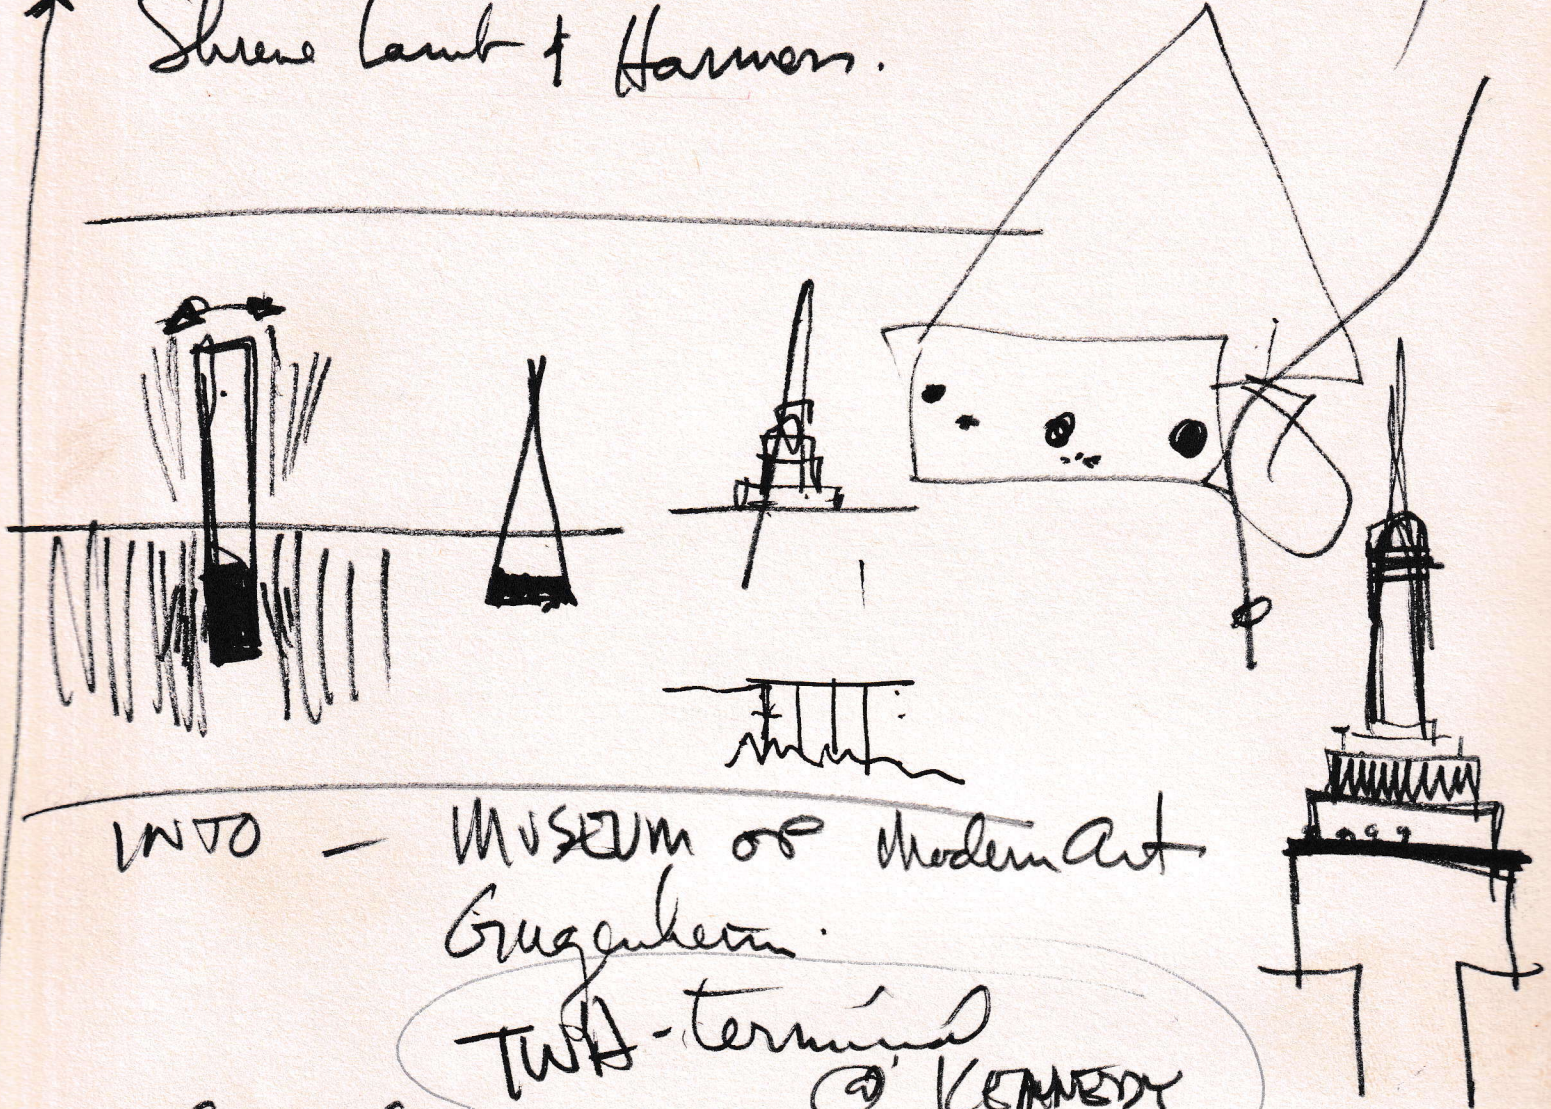 Shreve Lamb & Harmon.
INTO — MUSEUM OF Modern Art
Gugenheim.
TWA - terminal
@ KENNEDY